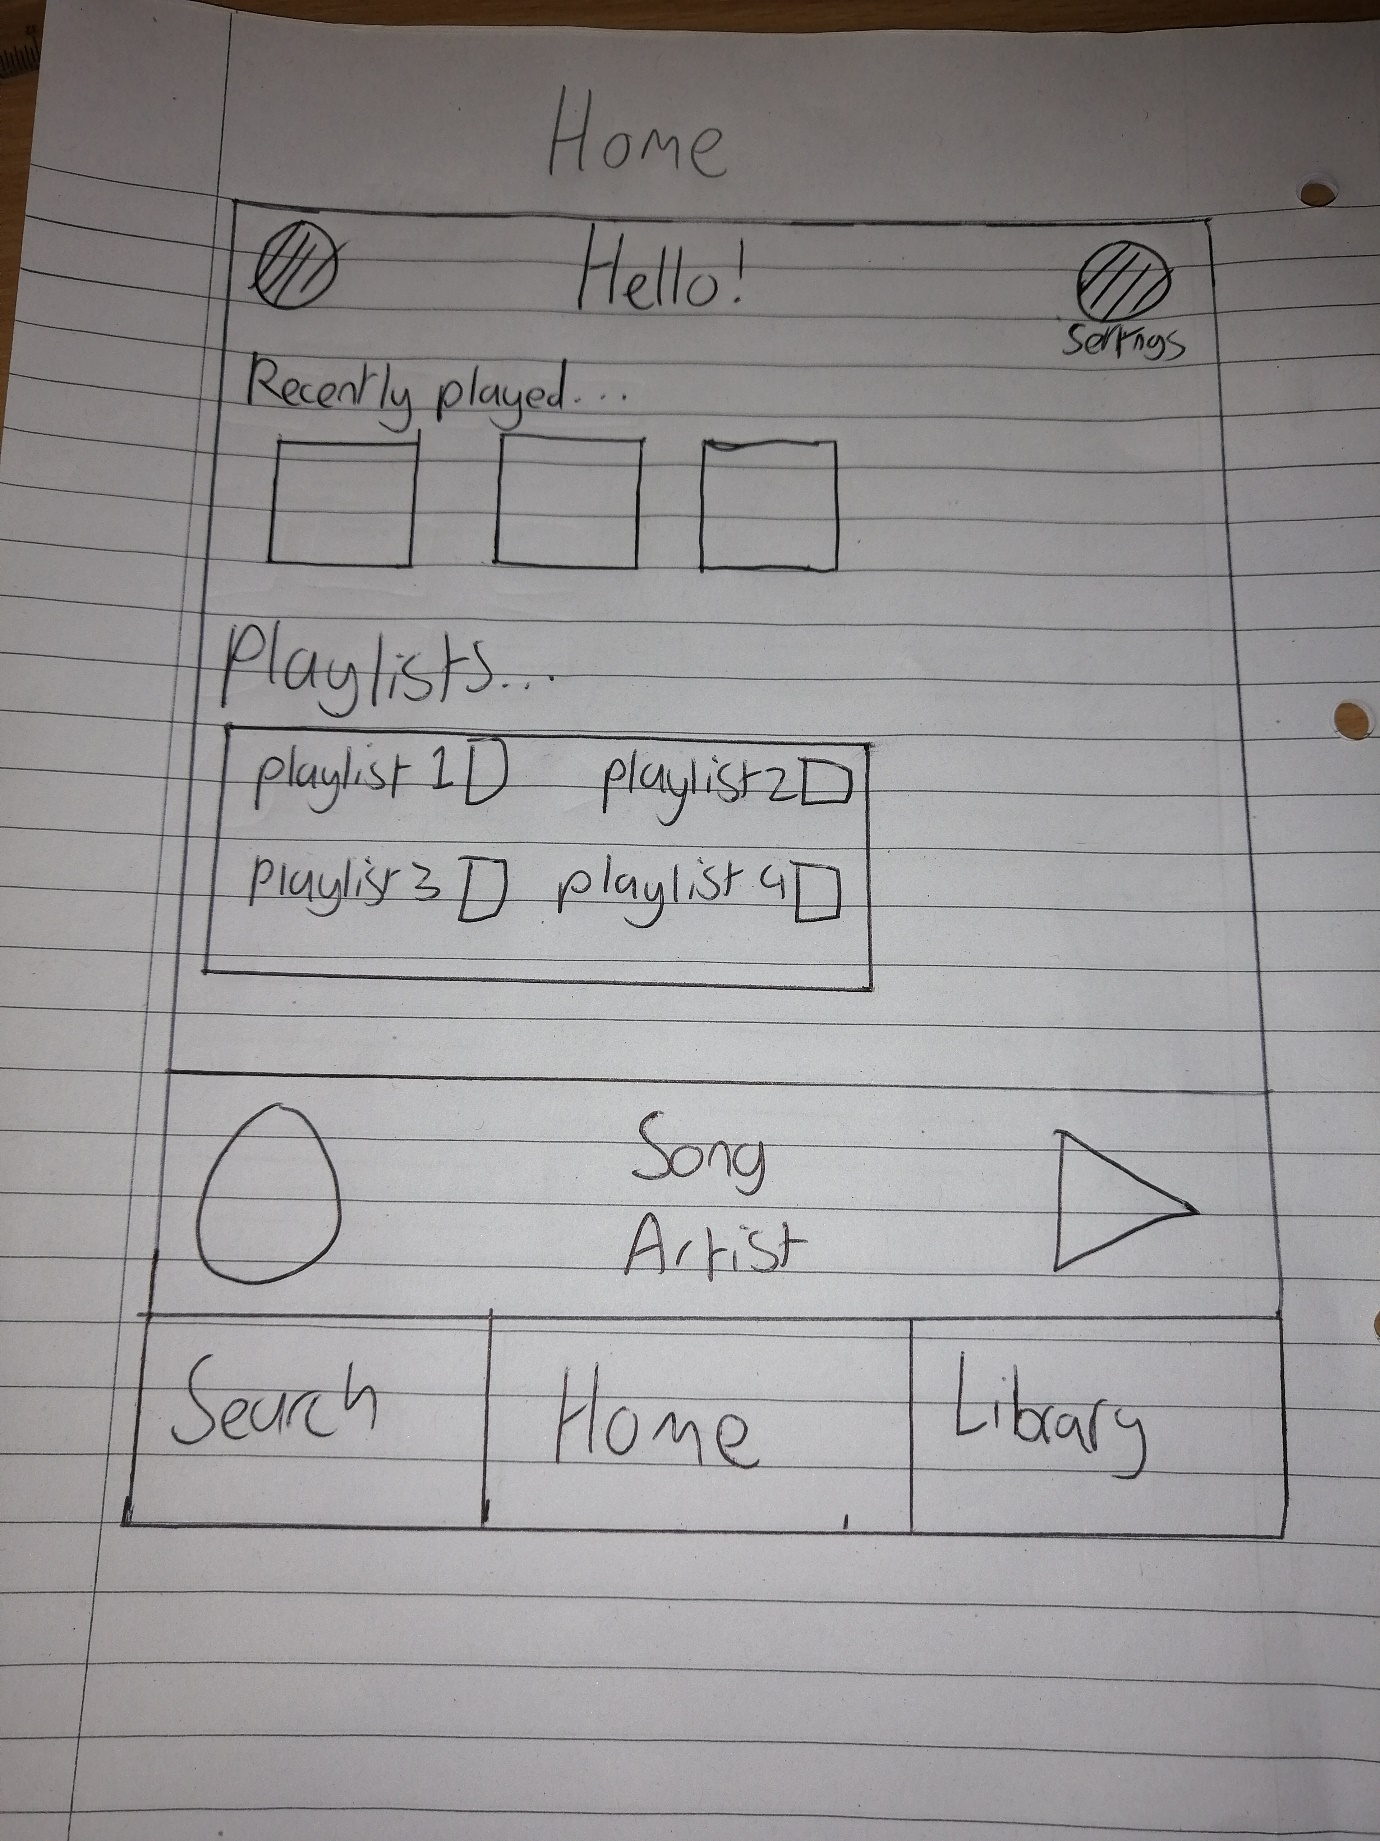 Home
Hello!
Settings
Recently played...
Playlists...
playlist 1 playlist 2
playlist 3 playlist 4
Song
Artist
Search Home Library